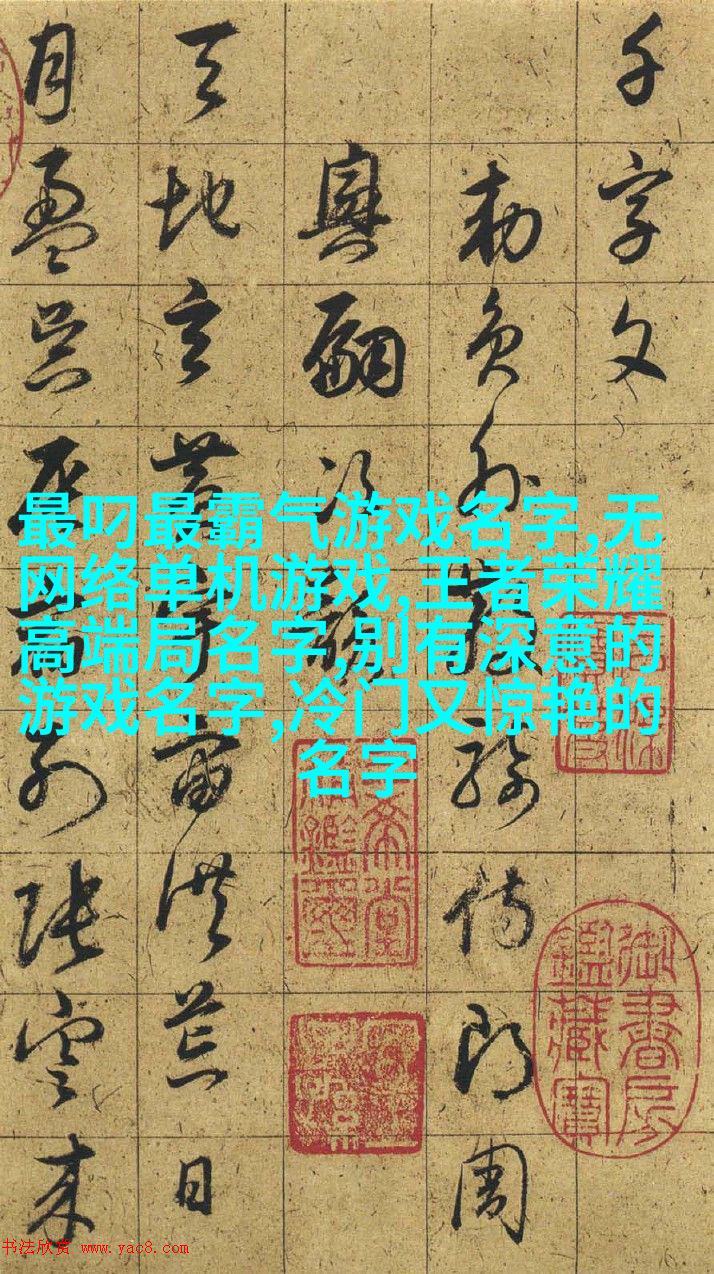 千字文
勅員外散騎侍郎周
興嗣次韻
天地玄黃宇宙洪荒日
月盈昃辰宿列張寒來
最叼最霸气游戏名字,无
网络单机游戏,王者荣耀
高端局名字,别有深意的
游戏名字,冷门又惊艳的
名字
御書房
鑑藏寶
书法欣赏 www.yac8.com